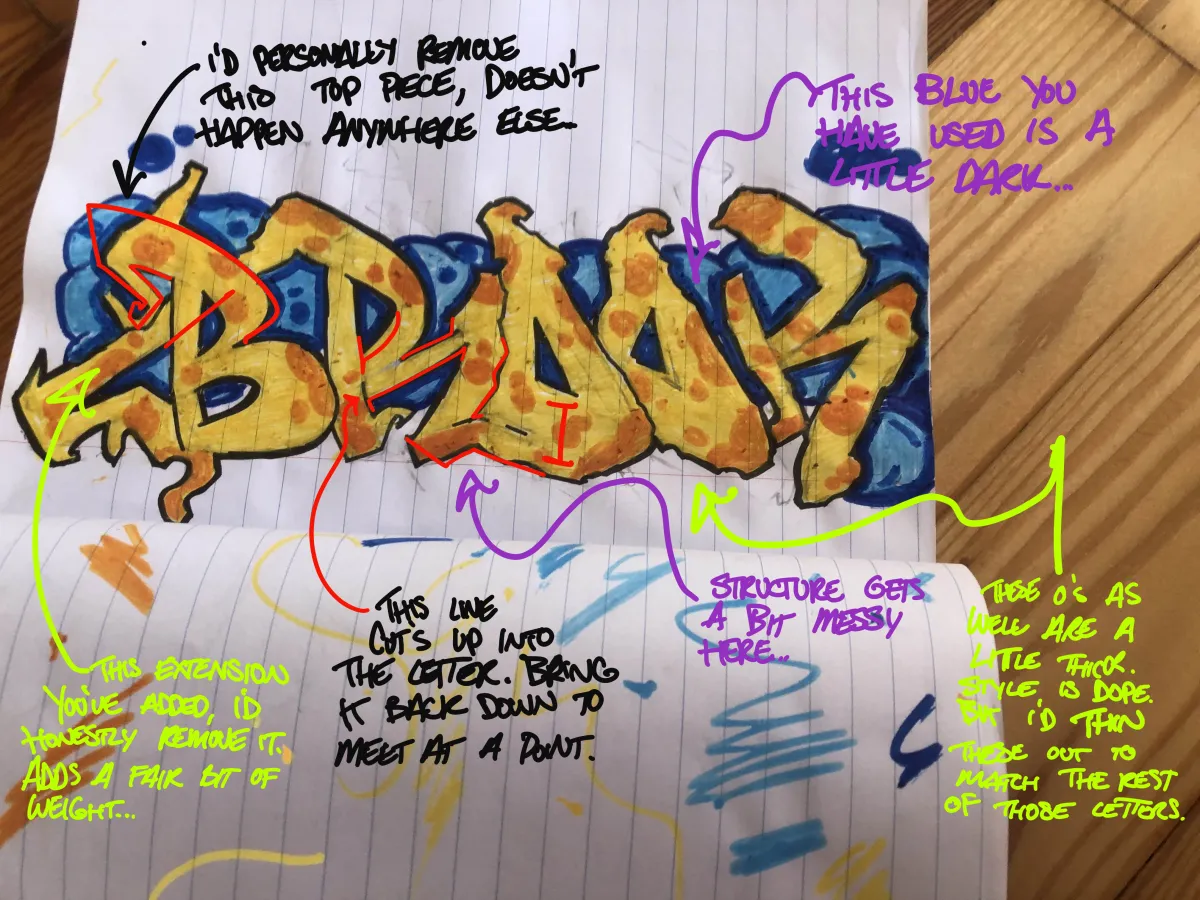 I'D PERSONALLY REMOVE
THIS TOP PIECE, DOESN'T
HAPPEN ANYWHERE ELSE...
THIS BLUE YOU
HAVE USED IS A
LITTLE DARK...
BROOK
THIS LINE
CUTS UP INTO
THE LETTER. BRING
IT BACK DOWN TO
MEET AT A POINT.
STRUCTURE GETS
A BIT MESSY
HERE...
THESE O'S AS
WELL ARE A
LITTLE THICK.
STYLE IS DOPE.
BUT I'D THIN
THESE OUT TO
MATCH THE REST
OF THOSE LETTERS.
THIS EXTENSION
YOU'VE ADDED, I'D
HONESTLY REMOVE IT.
ADDS A FAIR BIT OF
WEIGHT...